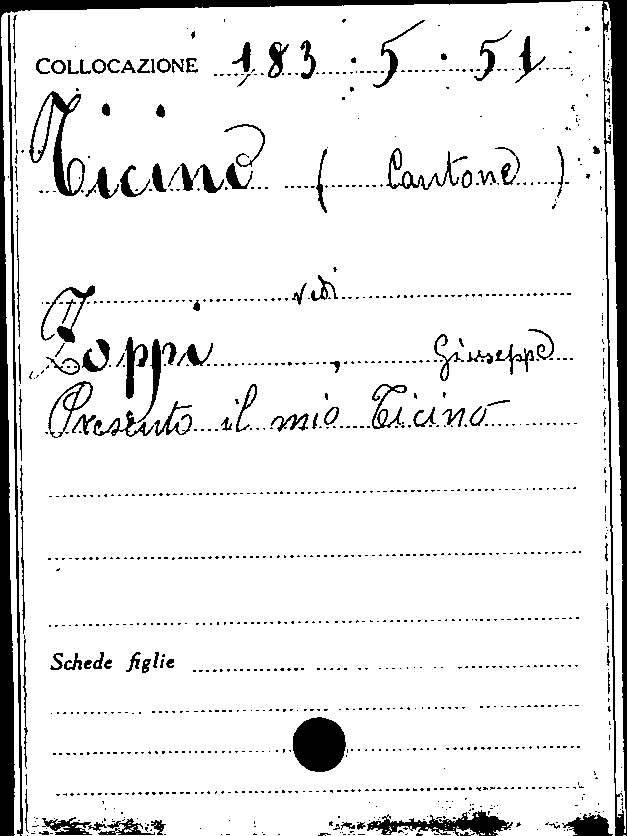 COLLOCAZIONE 183.5.51
Ticino (Cantone)
vedi
Zoppi, Giuseppe
Presento il mio Ticino
Schede figlie